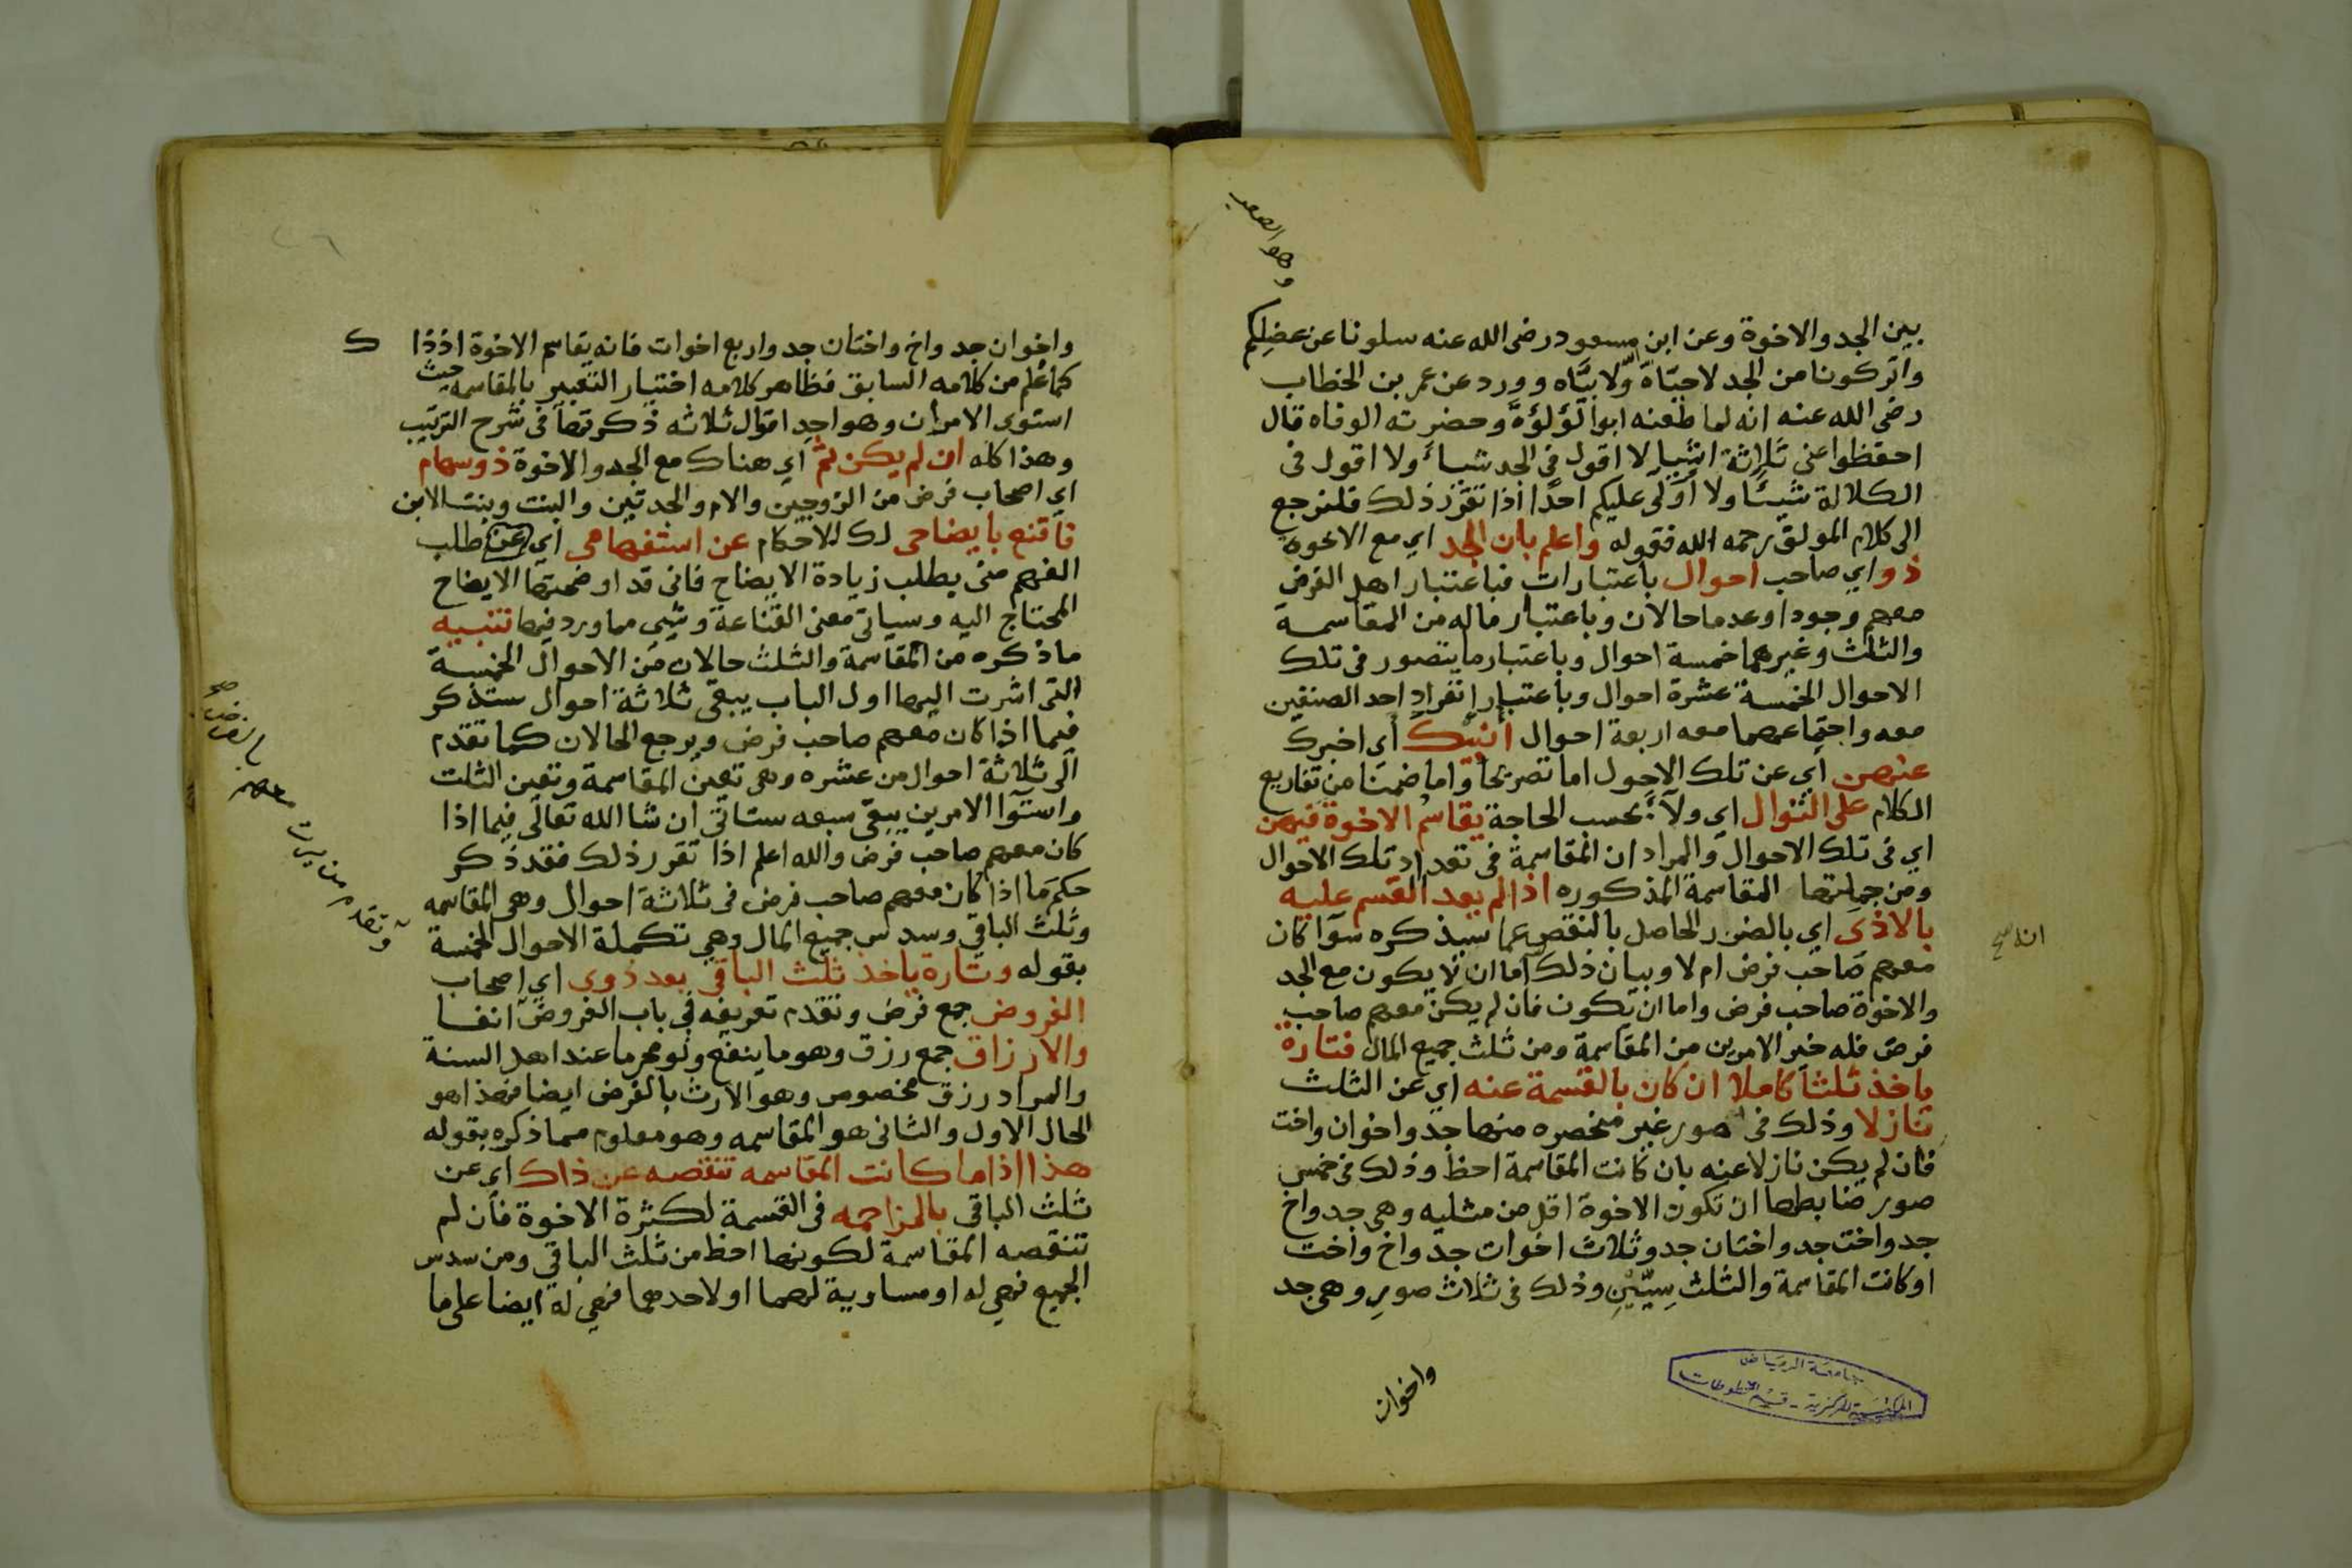 وهو الصعب
بين الجد والاخوة وعن ابن مسعود رضى الله عنه سلونا عن عضلكم
واتركونا من الجد لا حيّاهُ ولا بيّاه وورد عن عمر بن الخطاب
رضى الله عنه انه لما طعنه ابو لؤلؤة وحضرته الوفاه قال
احفظوا عنى ثلاثة اشيا لا اقول فى الجد شيأ ولا اقول فى
الكلالة شيئا ولا اولى عليكم احدا اذا تقرر ذلك فلنرجع
الى كلام المولف رحمه الله فقوله واعلم بان الجد اي مع الاخوة
ذو اي صاحب احوال باعتبارات فباعتبار اهل الفرض
معهم وجودا وعدما حالان وباعتبار ماله من المقاسمة
والثلث وغيرهما خمسة احوال وباعتبار ما يتصور فى تلك
الاحوال الخمسة عشرة احوال وباعتبار انفراد احد الصنفين
معه واجتماعهما معه اربعة احوال أنبيك أي اخبرك
عنهن اي عن تلك الاحول اما تصريحا واما ضمنا من تفاريع
الكلام على التوال اي ولآءً بحسب الحاجة يقاسم الاخوة فيهن
اي فى تلك الاحوال والمراد ان المقاسمة فى تعداد تلك الاحوال
ومن جملتها المقاسمة المذكوره اذا لم يعد القسم عليه
بالاذى اي بالضرر الحاصل بالنقص عما سيذكره سوآ كان
معهم صاحب فرض ام لا وبيان ذلك اما ان لا يكون مع الجد
والاخوة صاحب فرض واما ان يكون فان لم يكن معهم صاحب
فرض فله خير الامرين من المقاسمة ومن ثلث جميع المال فتارة
ياخذ ثلثا كاملا ان كان بالقسمة عنه اي عن الثلث
نازلا وذلك فى صور غير منحصره منها جد واخوان واخت
فان لم يكن نازلا عنه بان كانت المقاسمة احظ وذلك فى خمس
صور ضابطها ان تكون الاخوة اقل من مثليه وهى جد واخ
جد واخت جد واختان جد وثلاث اخوات جد واخ واخت
او كانت المقاسمة والثلث سِيّينِ وذلك فى ثلاث صور وهى جد
واخوان
انه صح
جامعة الرياض
المكتبة المركزية - قسم المخطوطات
٢٦
واخوان جد واخ واختان جد واربع اخوات فانه يقاسم الاخوة اذذا ك
كما علم من كلامه السابق فظاهر كلامه اختيار التعبير بالمقاسمه حيث
استوى الامران وهو احد اقوال ثلاثه ذكرتها فى شرح الترتيب
وهذا كله ان لم يكن ثم اي هناك مع الجد والاخوة ذو سهام
اي اصحاب فرض من الزوجين والام والجدتين والبنت وبنت الابن
فاقنع بايضاحى لك الاحكام عن استفهامى اي عن طلب
الفهم منى بطلب زيادة الايضاح فانى قد اوضحتها الايضاح
المحتاج اليه وسياتى معنى القناعة وشيى مما ورد فيها تنبيه
ما ذكره من المقاسمة والثلث حالان من الاحوال الخمسة
التى اشرت اليها اول الباب يبقى ثلاثة احوال ستذكر
فيما اذا كان معهم صاحب فرض ويرجع الحالان كما تقدم
الى ثلاثة احوال من عشره وهى تعين المقاسمة وتعين الثلث
واستوآ الامرين يبقى سبعه ستاتى ان شا الله تعالى فيما اذا
كان معهم صاحب فرض والله اعلم اذا تقرر ذلك فقد ذكر
حكم ما اذا كان معهم صاحب فرض فى ثلاثة احوال وهى المقاسمه
وثلث الباقى وسدس جميع المال وهى تكملة الاحوال الخمسة
بقوله وتارة ياخذ ثلث الباقى بعد ذوى اي اصحاب
الفروض جمع فرض وتقدم تعريفه فى باب الفروض آنفا
والارزاق جمع رزق وهو ما ينفع ولو محرما عند اهل السنة
والمراد رزق مخصوص وهو الارث بالفرض ايضا فهذا هو
الحال الاول والثانى هو المقاسمه وهو معلوم مما ذكره بقوله
هذا اذا ما كانت المقاسمه تنقصه عن ذاك اي عن
ثلث الباقى بالمزاحمه فى القسمة لكثرة الاخوة فان لم
تنقصه المقاسمة لكونها احظ من ثلث الباقى ومن سدس
الجميع فهى له او مساوية لهما او لاحدهما فهى له ايضا على ما
وتقدم من يرث معهم